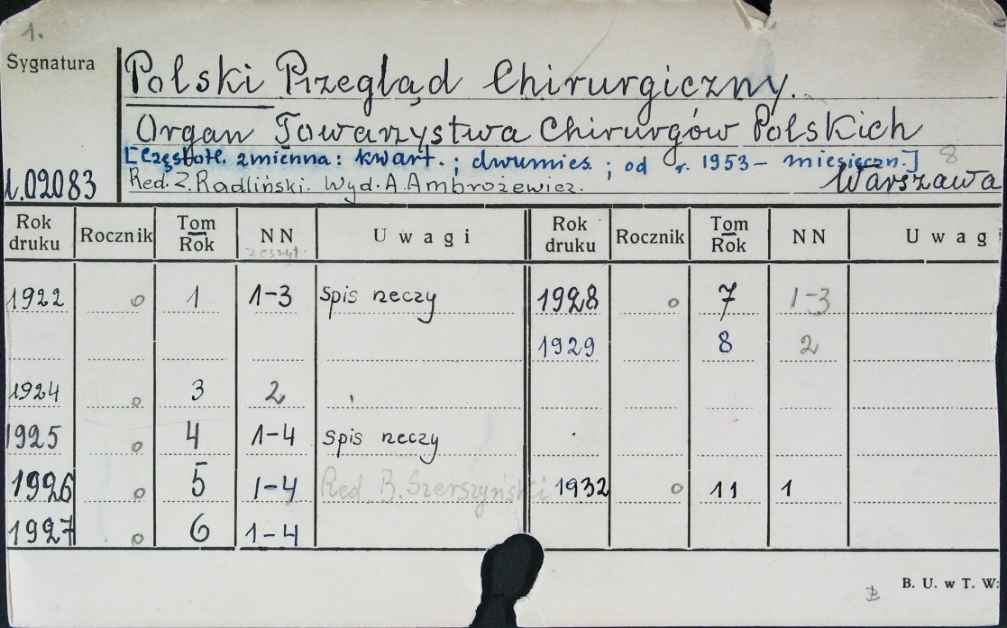 1.
Sygnatura
Polski Przegląd Chirurgiczny.
Organ Towarzystwa Chirurgów Polskich
[Częstotl. zmienna: kwart.; dwumies.; od r. 1953 – miesięczn.] 8
1.02083 Red. Z. Radliński. Wyd. A. Ambrożewicz. Warszawa
Rok druku Rocznik Tom Rok NN zeszyt. Uwagi Rok druku Rocznik Tom Rok NN Uwagi
1922 o 1 1-3 Spis rzeczy 1928 o 7 1-3
1929 8 2
1924 o 3 2
1925 o 4 1-4 spis rzeczy
1926 o 5 1-4 Red. B. Szerszyński 1932 o 11 1
1927 o 6 1-4
B. U. w T. W: